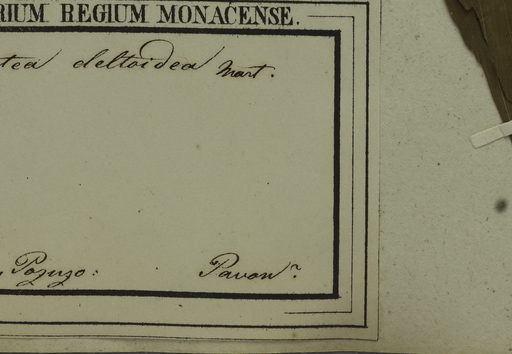 RIUM REGIUM MONACENSE.
tea deltoidea Mart.
Pozuzo: Pavon.